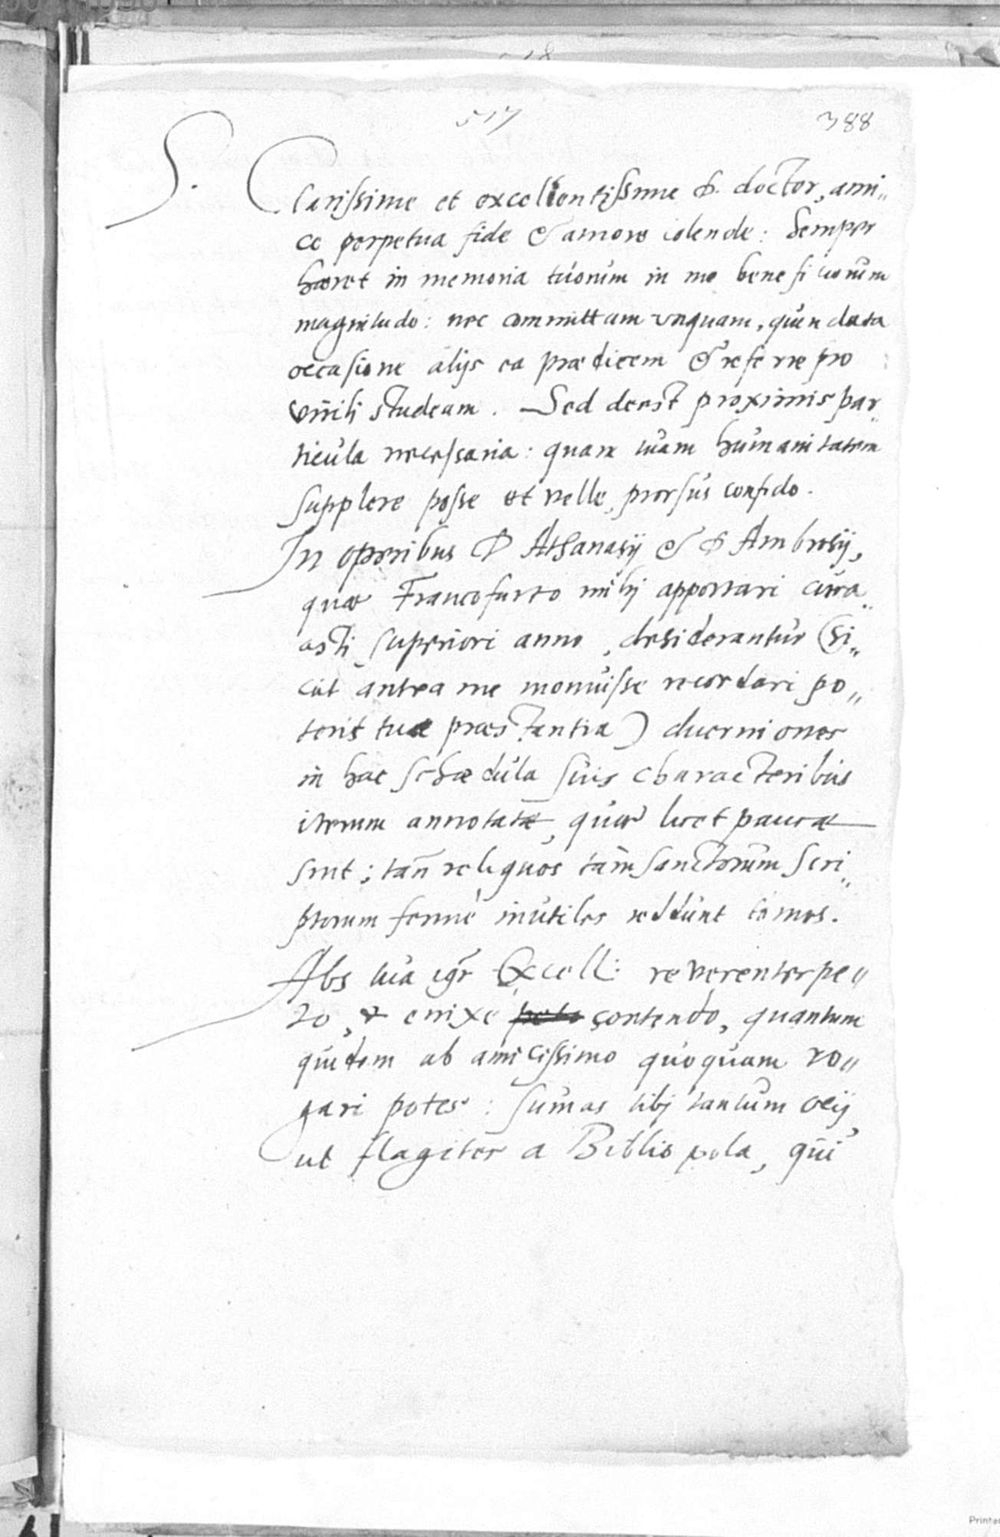 517 388
S. Clarissime et excellentissime D. doctor, ami„
ce perpetua fide & amore colende: Semper
haeret in memoria tuorum in me beneficiorum
magnitudo: nec committam unquam, quin data
occasione alijs ea praedicem & referre pro
virili studeam. Sed deest proximis par„
ticula necessaria: quam tuam humanitatem
supplere posse et velle, prorsus confido.
In operibus D Athanasij & D Ambrosij,
quae Francofurto mihi apportari cura„
asti superiori anno, desiderantur (si„
cut antea me monuisse recordari po„
terit tua praestantia) duerniones
in hac schaedula suis characteribus
iterum annotatae, quae licet paucae
sint; tañ reliquos tam Sanctorum Scri„
ptorum fermè inutiles reddunt tomos.
Abs tua igr Excell: reverenter pe„
to, & enixe peto contendo, quantum
quidem ab amicissimo quoquam ro„
gari potes: sumas tibi tantum ocij
ut flagites a Bibliopola, qui